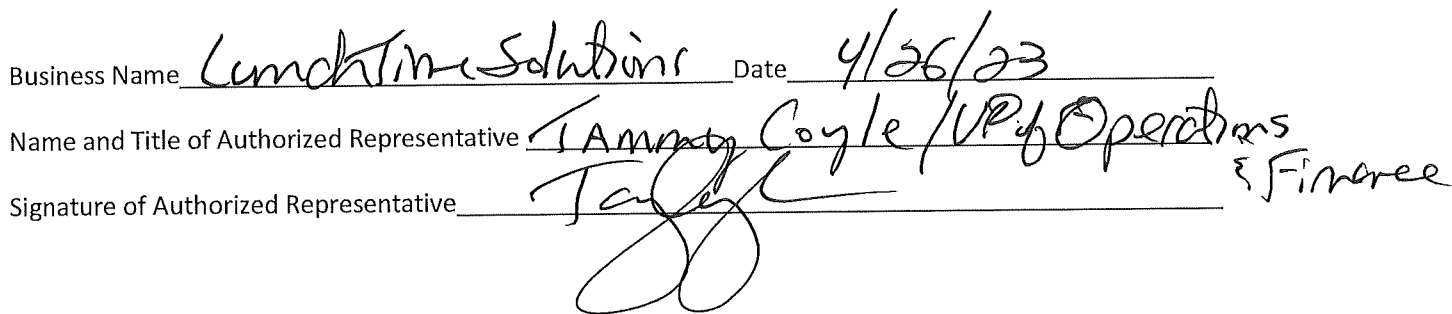 Business Name LunchTime Solutions Date 4/26/23
Name and Title of Authorized Representative Tammy Coyle / VP of Operations
& Finance
Signature of Authorized Representative